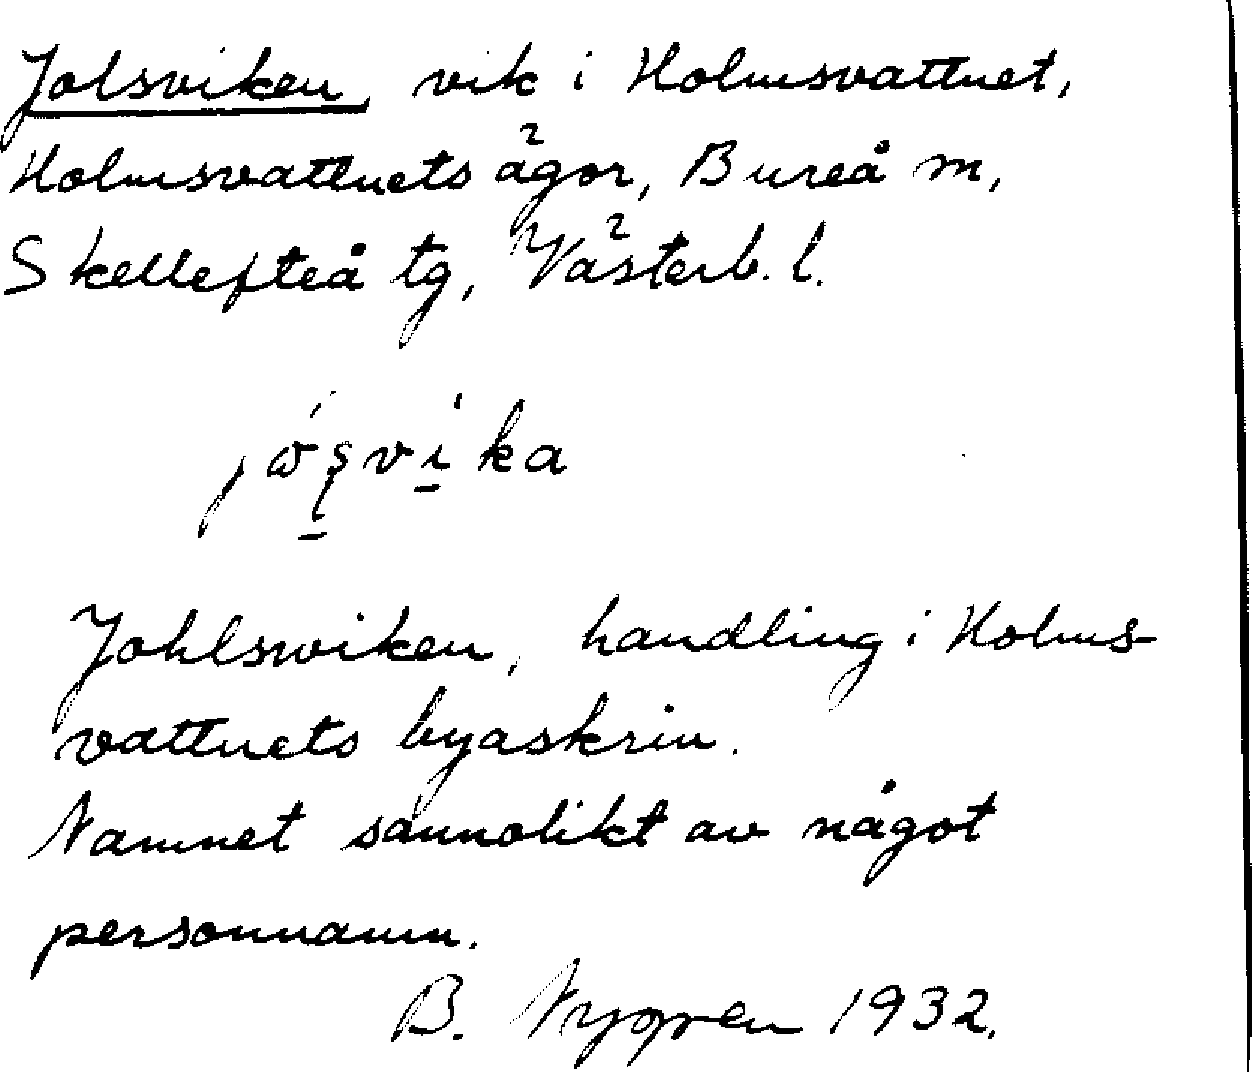 Jolsviken, vik i Holmsvattnet,
Holmsvattnets ägor, Bureå m,
Skellefteå tg, Västerb. l.
Johlswiken, handling i Holms-
vattnets byaskrin.
Namnet sannolikt av något
personnamn.
B. Nygren 1932.